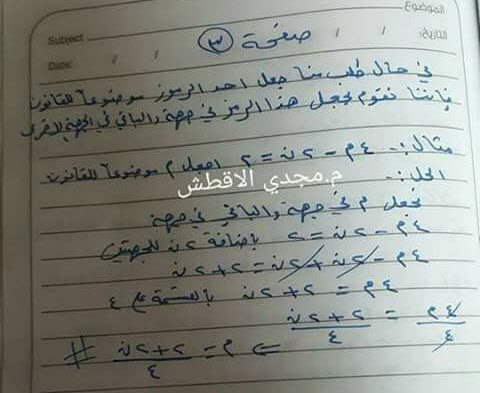 الموضوع
التاريخ: / /
Subject
Date: / /
صفحة ٣
في حال طلب منا جعل احد الرموز موضوعاً للقانون
فإننا نقوم بجعل هذا الرمز في جهة والباقي في الجهة الاخرى
مثال :- ٤م - ٢ن = ٢ اجعل م موضوعاً للقانون
الحل :-
م.مجدي الاقطش
نجعل م في جهة والباقي في جهة
٤م - ٢ن = ٢ بإضافة ٢ن للجهتين
٤م - ٢ن + ٢ن = ٢ + ٢ن
٤م = ٢ + ٢ن بالقسمة على ٤
٤م/٤ = ٢ + ٢ن/٤
⇐ م = ٢ + ٢ن/٤ #